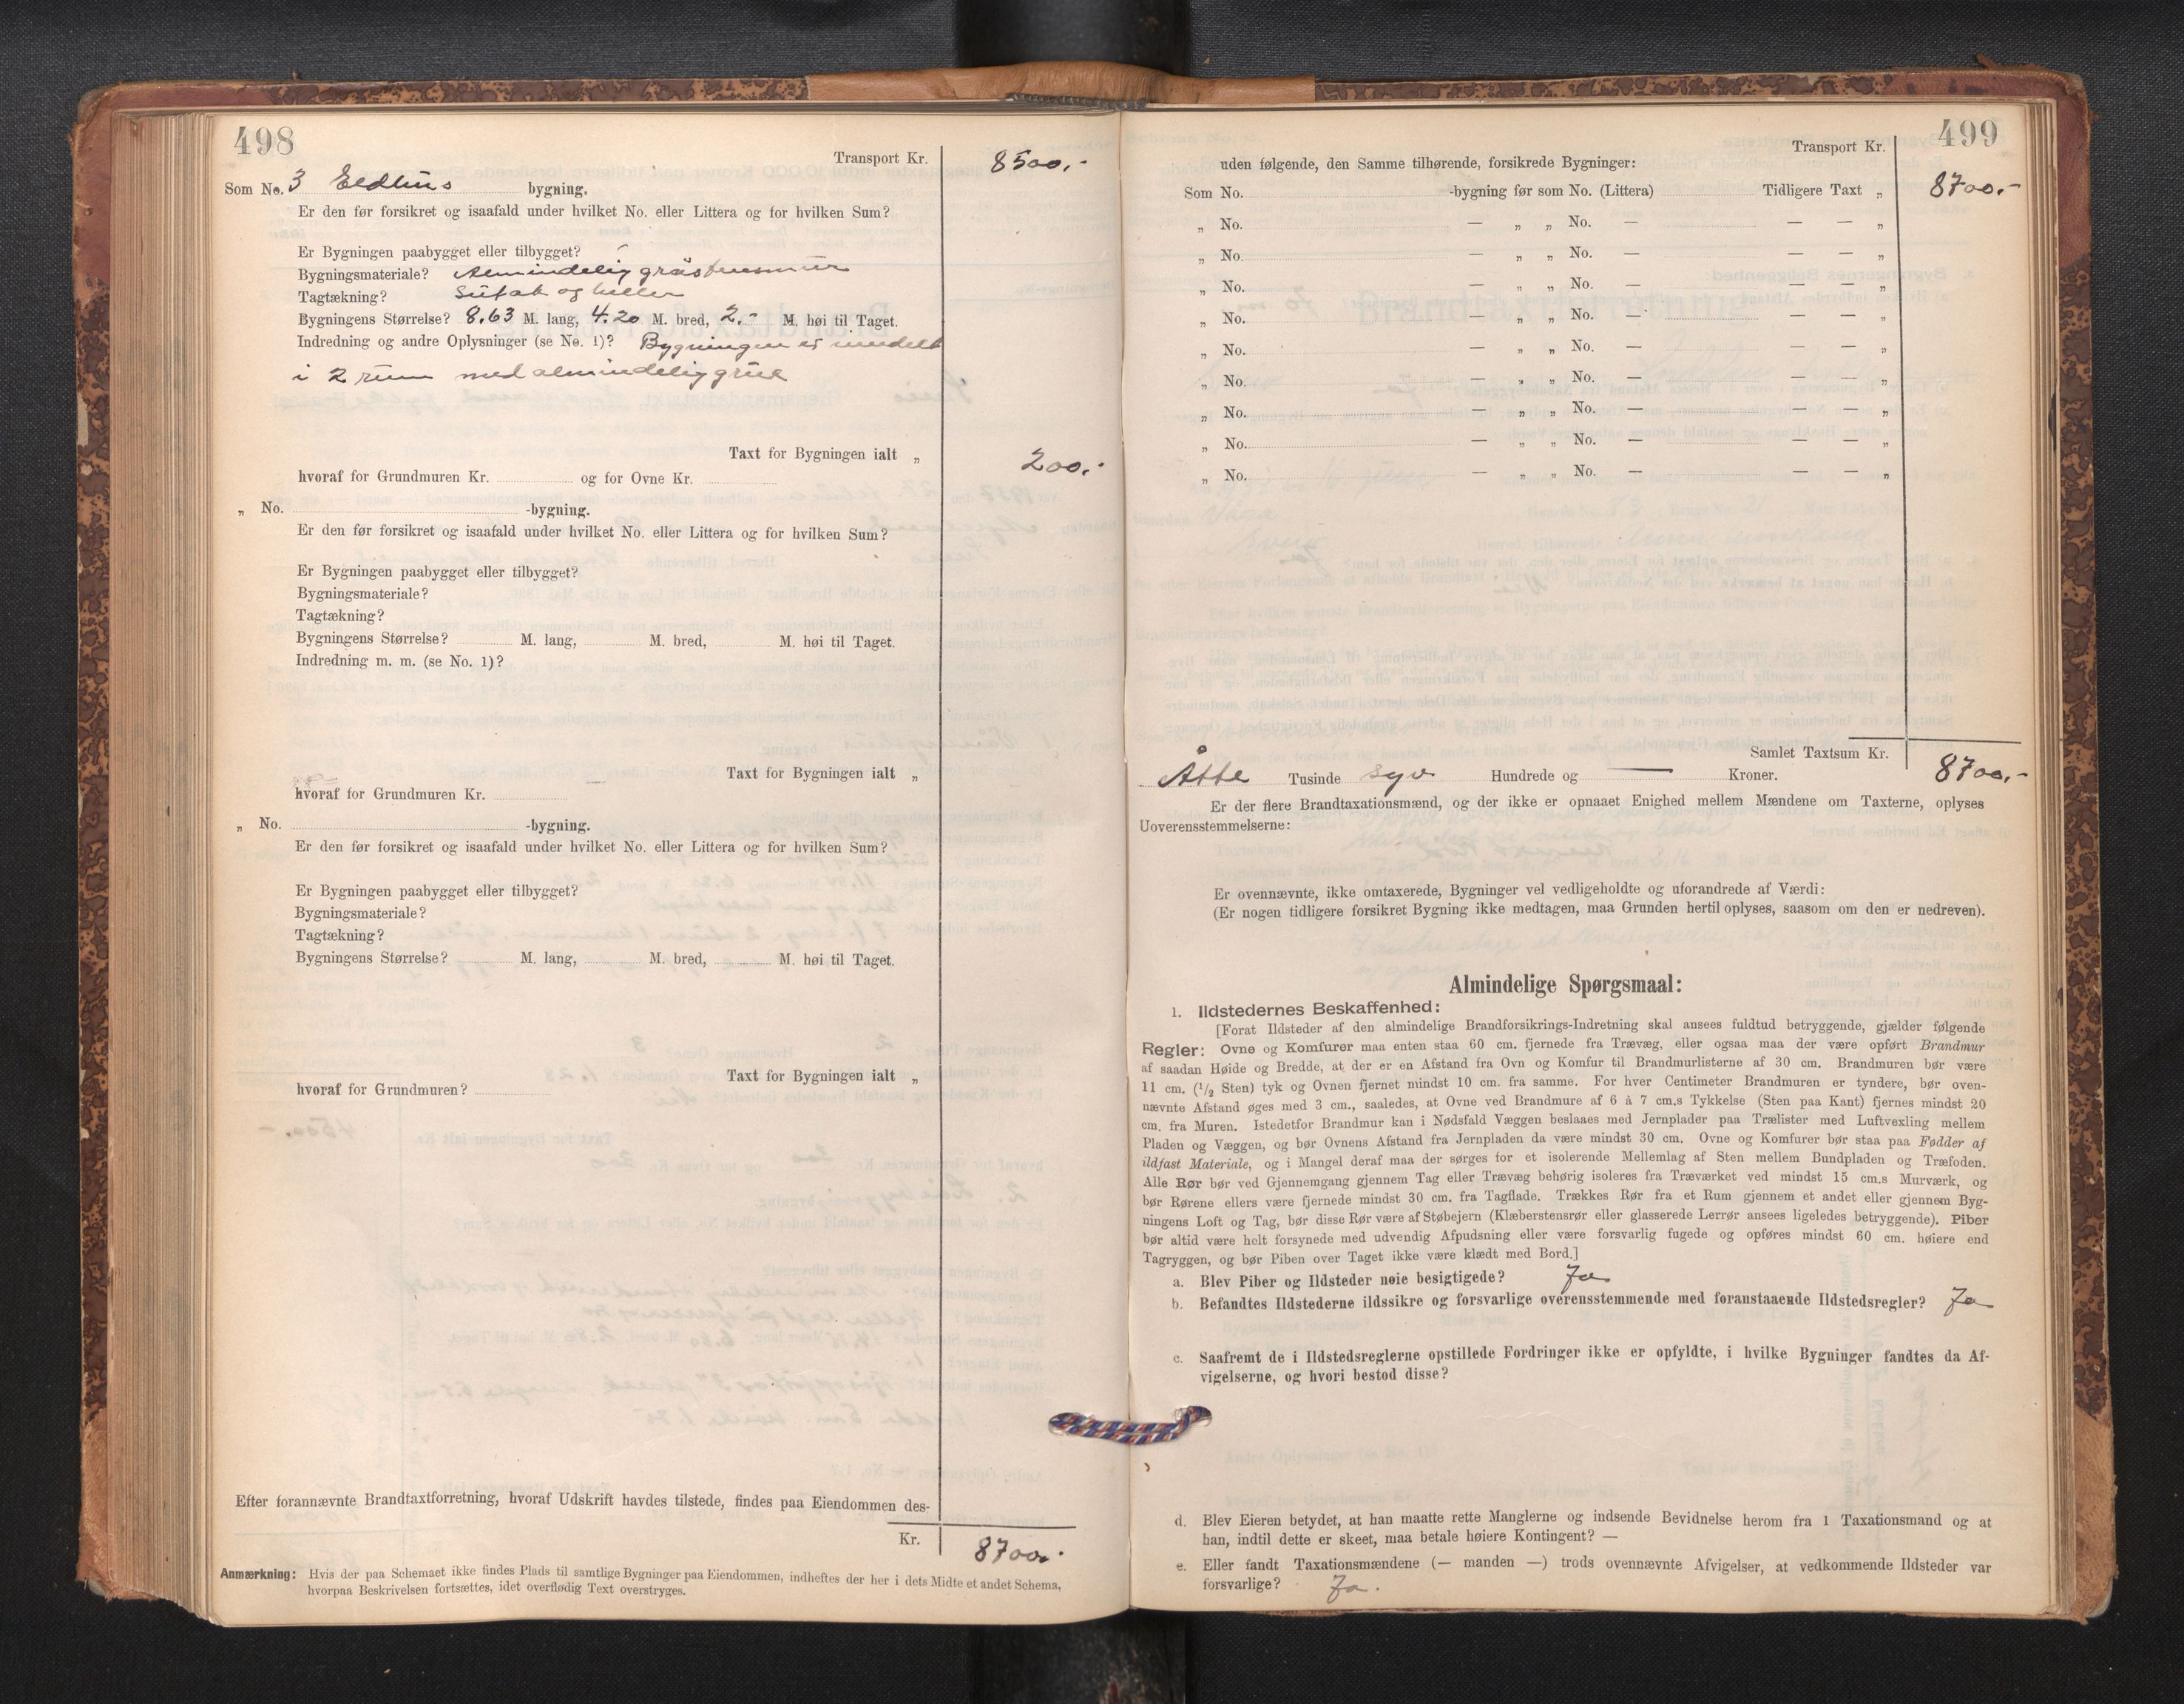 498
Transport Kr. 8500.-
Som No. 3 Eldhus bygning.
Er den før forsikret og isaafald under hvilket No. eller Littera og for hvilken Sum?
Er Bygningen paabygget eller tilbygget?
Bygningsmateriale? Almindelig gråstensmur
Tagtækning? Sutak og heller
Bygningens Størrelse? 8.63 M. lang, 4.20 M. bred, 2.- M. høi til Taget.
Indredning og andre Oplysninger (se No. 1)? Bygningen er inndelt
i 2 rum med almindelig grue
Taxt for Bygningen ialt „ 200.-
hvoraf for Grundmuren Kr. og for Ovne Kr.
„ No. -bygning.
Er den før forsikret og isaafald under hvilket No. eller Littera og for hvilken Sum?
Er Bygningen paabygget eller tilbygget?
Bygningsmateriale?
Tagtækning?
Bygningens Størrelse? M. lang, M. bred, M. høi til Taget.
Indredning m. m. (se No. 1)?
Taxt for Bygningen ialt „
hvoraf for Grundmuren Kr.
„ No. -bygning.
Er den før forsikret og isaafald under hvilket No. eller Littera og for hvilken Sum?
Er Bygningen paabygget eller tilbygget?
Bygningsmateriale?
Tagtækning?
Bygningens Størrelse? M. lang, M. bred, M. høi til Taget.
Taxt for Bygningen ialt „
hvoraf for Grundmuren?
Efter forannævnte Brandtaxtforretning, hvoraf Udskrift havdes tilstede, findes paa Eiendommen des-
Kr. 8700.-
Anmærkning: Hvis der paa Schemaet ikke findes Plads til samtlige Bygninger paa Eiendommen, indheftes der her i dets Midte et andet Schema,
hvorpaa Beskrivelsen fortsættes, idet overflødig Text overstryges.
499
Transport Kr. 8700.-
uden følgende, den Samme tilhørende, forsikrede Bygninger:
Som No. -bygning før som No. (Littera) Tidligere Taxt „
„ No. — „ „ No. — — — „
„ No. — „ „ No. — — — „
„ No. — „ „ No. — — — „
„ No. — „ „ No. — — — „
„ No. — „ „ No. — — — „
„ No. — „ „ No. — — — „
„ No. — „ „ No. — — — „
„ No. — „ „ No. — — — „
„ No. — „ „ No. — — — „
Samlet Taxtsum Kr. 8700.-
Åtte Tusinde syv Hundrede og — Kroner.
Er der flere Brandtaxationsmænd, og der ikke er opnaaet Enighed mellem Mændene om Taxterne, oplyses
Uoverensstemmelserne:
Er ovennævnte, ikke omtaxerede, Bygninger vel vedligeholdte og uforandrede af Værdi:
(Er nogen tidligere forsikret Bygning ikke medtagen, maa Grunden hertil oplyses, saasom om den er nedreven).
Almindelige Spørgsmaal:
1. Ildstedernes Beskaffenhed:
[Forat Ildsteder af den almindelige Brandforsikrings-Indretning skal ansees fuldtud betryggende, gjælder følgende
Regler: Ovne og Komfurer maa enten staa 60 cm. fjernede fra Trævæg, eller ogsaa maa der være opført Brandmur
af saadan Høide og Bredde, at der er en Afstand fra Ovn og Komfur til Brandmurlisterne af 30 cm. Brandmuren bør være
11 cm. (1/2 Sten) tyk og Ovnen fjernet mindst 10 cm. fra samme. For hver Centimeter Brandmuren er tyndere, bør oven-
nævnte Afstand øges med 3 cm., saaledes, at Ovne ved Brandmure af 6 à 7 cm.s Tykkelse (Sten paa Kant) fjernes mindst 20
cm. fra Muren. Istedetfor Brandmur kan i Nødsfald Væggen beslaaes med Jernplader paa Trælister med Luftvexling mellem
Pladen og Væggen, og bør Ovnens Afstand fra Jernpladen da være mindst 30 cm. Ovne og Komfurer bør staa paa Fødder af
ildfast Materiale, og i Mangel deraf maa der sørges for et isolerende Mellemlag af Sten mellem Bundpladen og Træfoden.
Alle Rør bør ved Gjennemgang gjennem Tag eller Trævæg behørig isoleres fra Træværket ved mindst 15 cm.s Murværk, og
bør Rørene ellers være fjernede mindst 30 cm. fra Tagflade. Trækkes Rør fra et Rum gjennem et andet eller gjennem Byg-
ningens Loft og Tag, bør disse Rør være af Støbejern (Klæberstensrør eller glasserede Lerrør ansees ligeledes betryggende). Piber
bør altid være helt forsynede med udvendig Afpudsning eller være forsvarlig fugede og opføres mindst 60 cm. høiere end
Tagryggen, og bør Piben over Taget ikke være klædt med Bord.]
a. Blev Piber og Ildsteder nøie besigtigede? Ja
b. Befandtes Ildstederne ildssikre og forsvarlige overensstemmende med foranstaaende Ildstedsregler? Ja
c. Saafremt de i Ildstedsreglerne opstillede Fordringer ikke er opfyldte, i hvilke Bygninger fandtes da Af-
vigelserne, og hvori bestod disse?
d. Blev Eieren betydet, at han maatte rette Manglerne og indsende Bevidnelse herom fra 1 Taxationsmand og at
han, indtil dette er skeet, maa betale høiere Kontingent? —
e. Eller fandt Taxationsmændene (— manden —) trods ovennævnte Afvigelser, at vedkommende Ildsteder var
forsvarlige? Ja.